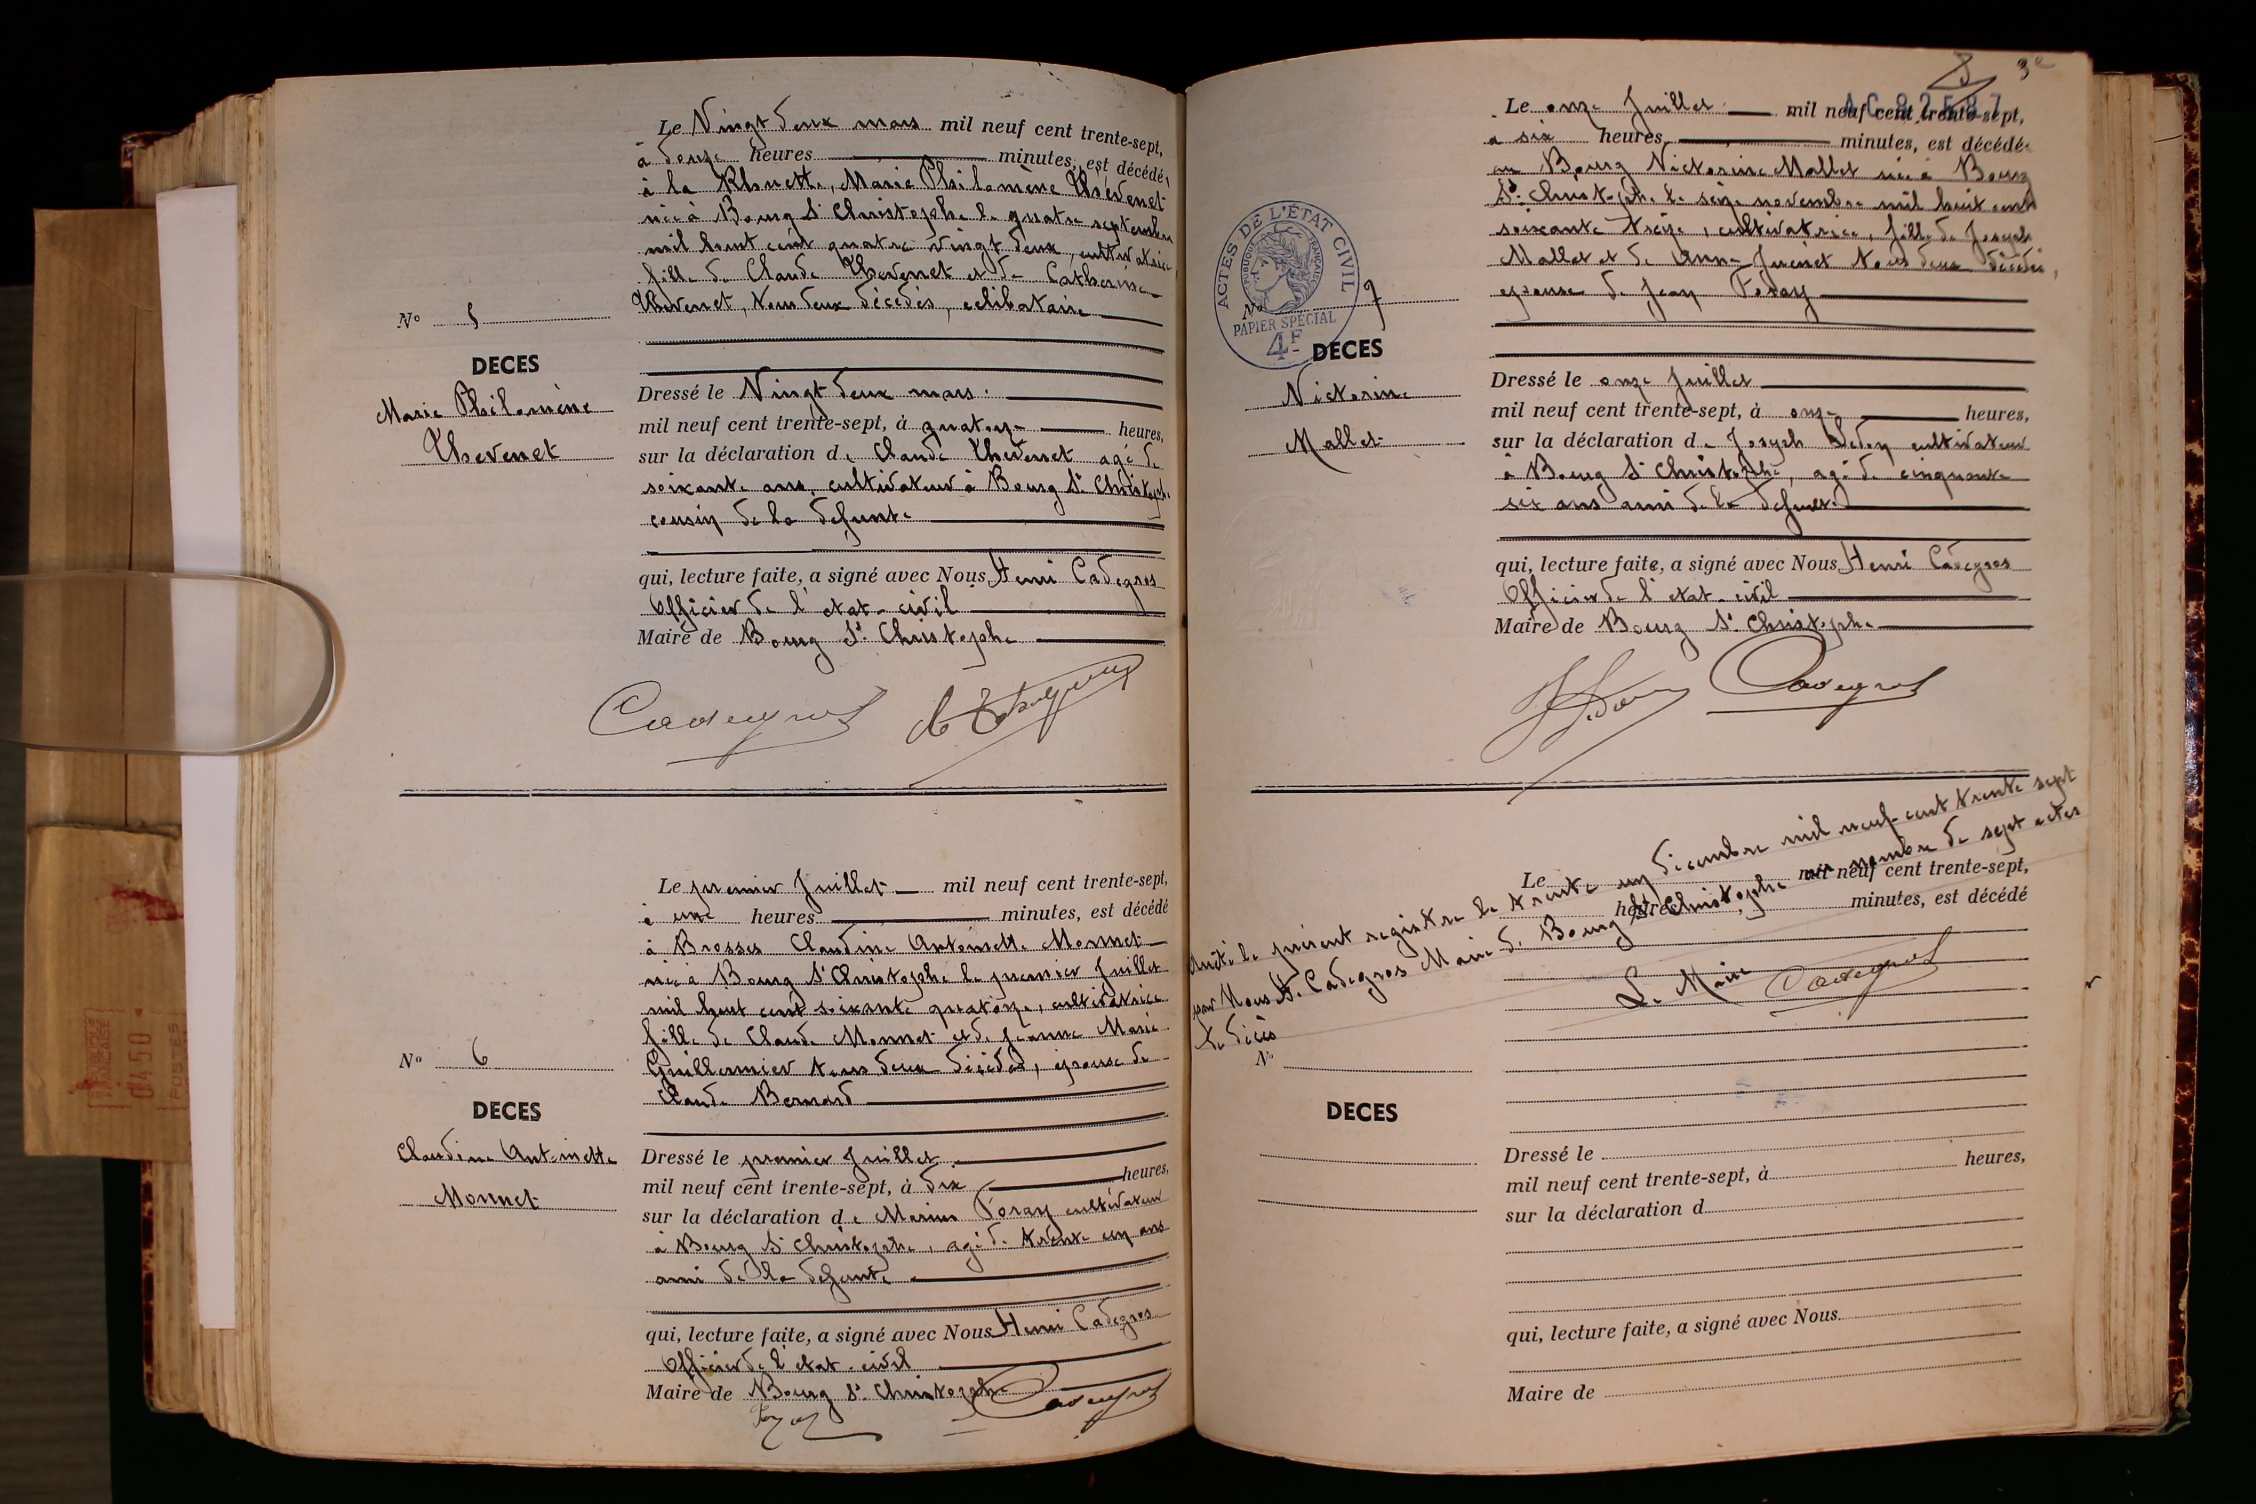 Le Vingt deux mars mil neuf cent trente-sept,
à douze heures minutes, est décédé
à la Marie Philomène Thévenet
née à Bourg St Christophe le quatre septembre
mil huit cent quatre vingt deux, cultivatrice,
fille de Claude Thevenet et de Catherine
Thevenet, tous deux décédés, célibataire
No 5
DECES
Marie Philomène
Thevenet
Dressé le Vingt deux mars
mil neuf cent trente-sept, à quatorze heures,
sur la déclaration de Claude Thevenet agé de
soixante ans, cultivateur à Bourg St Christophe
cousin de la defunte
qui, lecture faite, a signé avec Nous Henri Cadegros
Officier de l'etat-civil
Maire de Bourg St Christophe
Cadegros
Le premier Juillet mil neuf cent trente-sept,
à une heures minutes, est décédé
à Brosses Claudine Antoinette Monnet
née à Bourg St Christophe le premier Juillet
mil huit cent soixante quatorze, cultivatrice
fille de Claude Monnet et de Jeanne Marie
Guillermier tous deux décédés, épouse de
Claude Bernard
No 6
DECES
Claudine Antoinette
Monnet
Dressé le premier Juillet
mil neuf cent trente-sept, à dix heures,
sur la déclaration de Marius Féray cultivateur
à Bourg St Christophe, agé de trente un ans
ami de la defunte
qui, lecture faite, a signé avec Nous Henri Cadegros
Officier de l'etat-civil
Maire de Bourg St Christophe
Cadegros
3e
AC 82587
Le onze Juillet mil neuf cent trente-sept,
à six heures minutes, est décédé
au Bourg Victorine Mallet née à Bourg
St Christophe le seize novembre mil huit cent
soixante treize, cultivatrice, fille de Joseph
Mallet et de Anne Juenet tous deux décédés,
epouse de Jean Feray
ACTES DE L'ÉTAT CIVIL
RÉPUBLIQUE FRANÇAISE
PAPIER SPÉCIAL
4F
No 7
DECES
Victorine
Mallet
Dressé le onze Juillet
mil neuf cent trente-sept, à onze heures,
sur la déclaration de Joseph cultivateur
à Bourg St Christophe, agé de cinquante
six ans ami de la defunte
qui, lecture faite, a signé avec Nous Henri Cadegros
Officier de l'etat-civil
Maire de Bourg St Christophe
Cadegros
Arrêté le présent registre le trente un décembre mil neuf cent trente sept
par Nous H. Cadegros Maire de Bourg St Christophe au nombre de sept actes
de décès
Le Maire Cadegros
Le mil neuf cent trente-sept,
heures minutes, est décédé
No
DECES
Dressé le
mil neuf cent trente-sept, à heures,
sur la déclaration d
qui, lecture faite, a signé avec Nous
Maire de
0450
POSTES